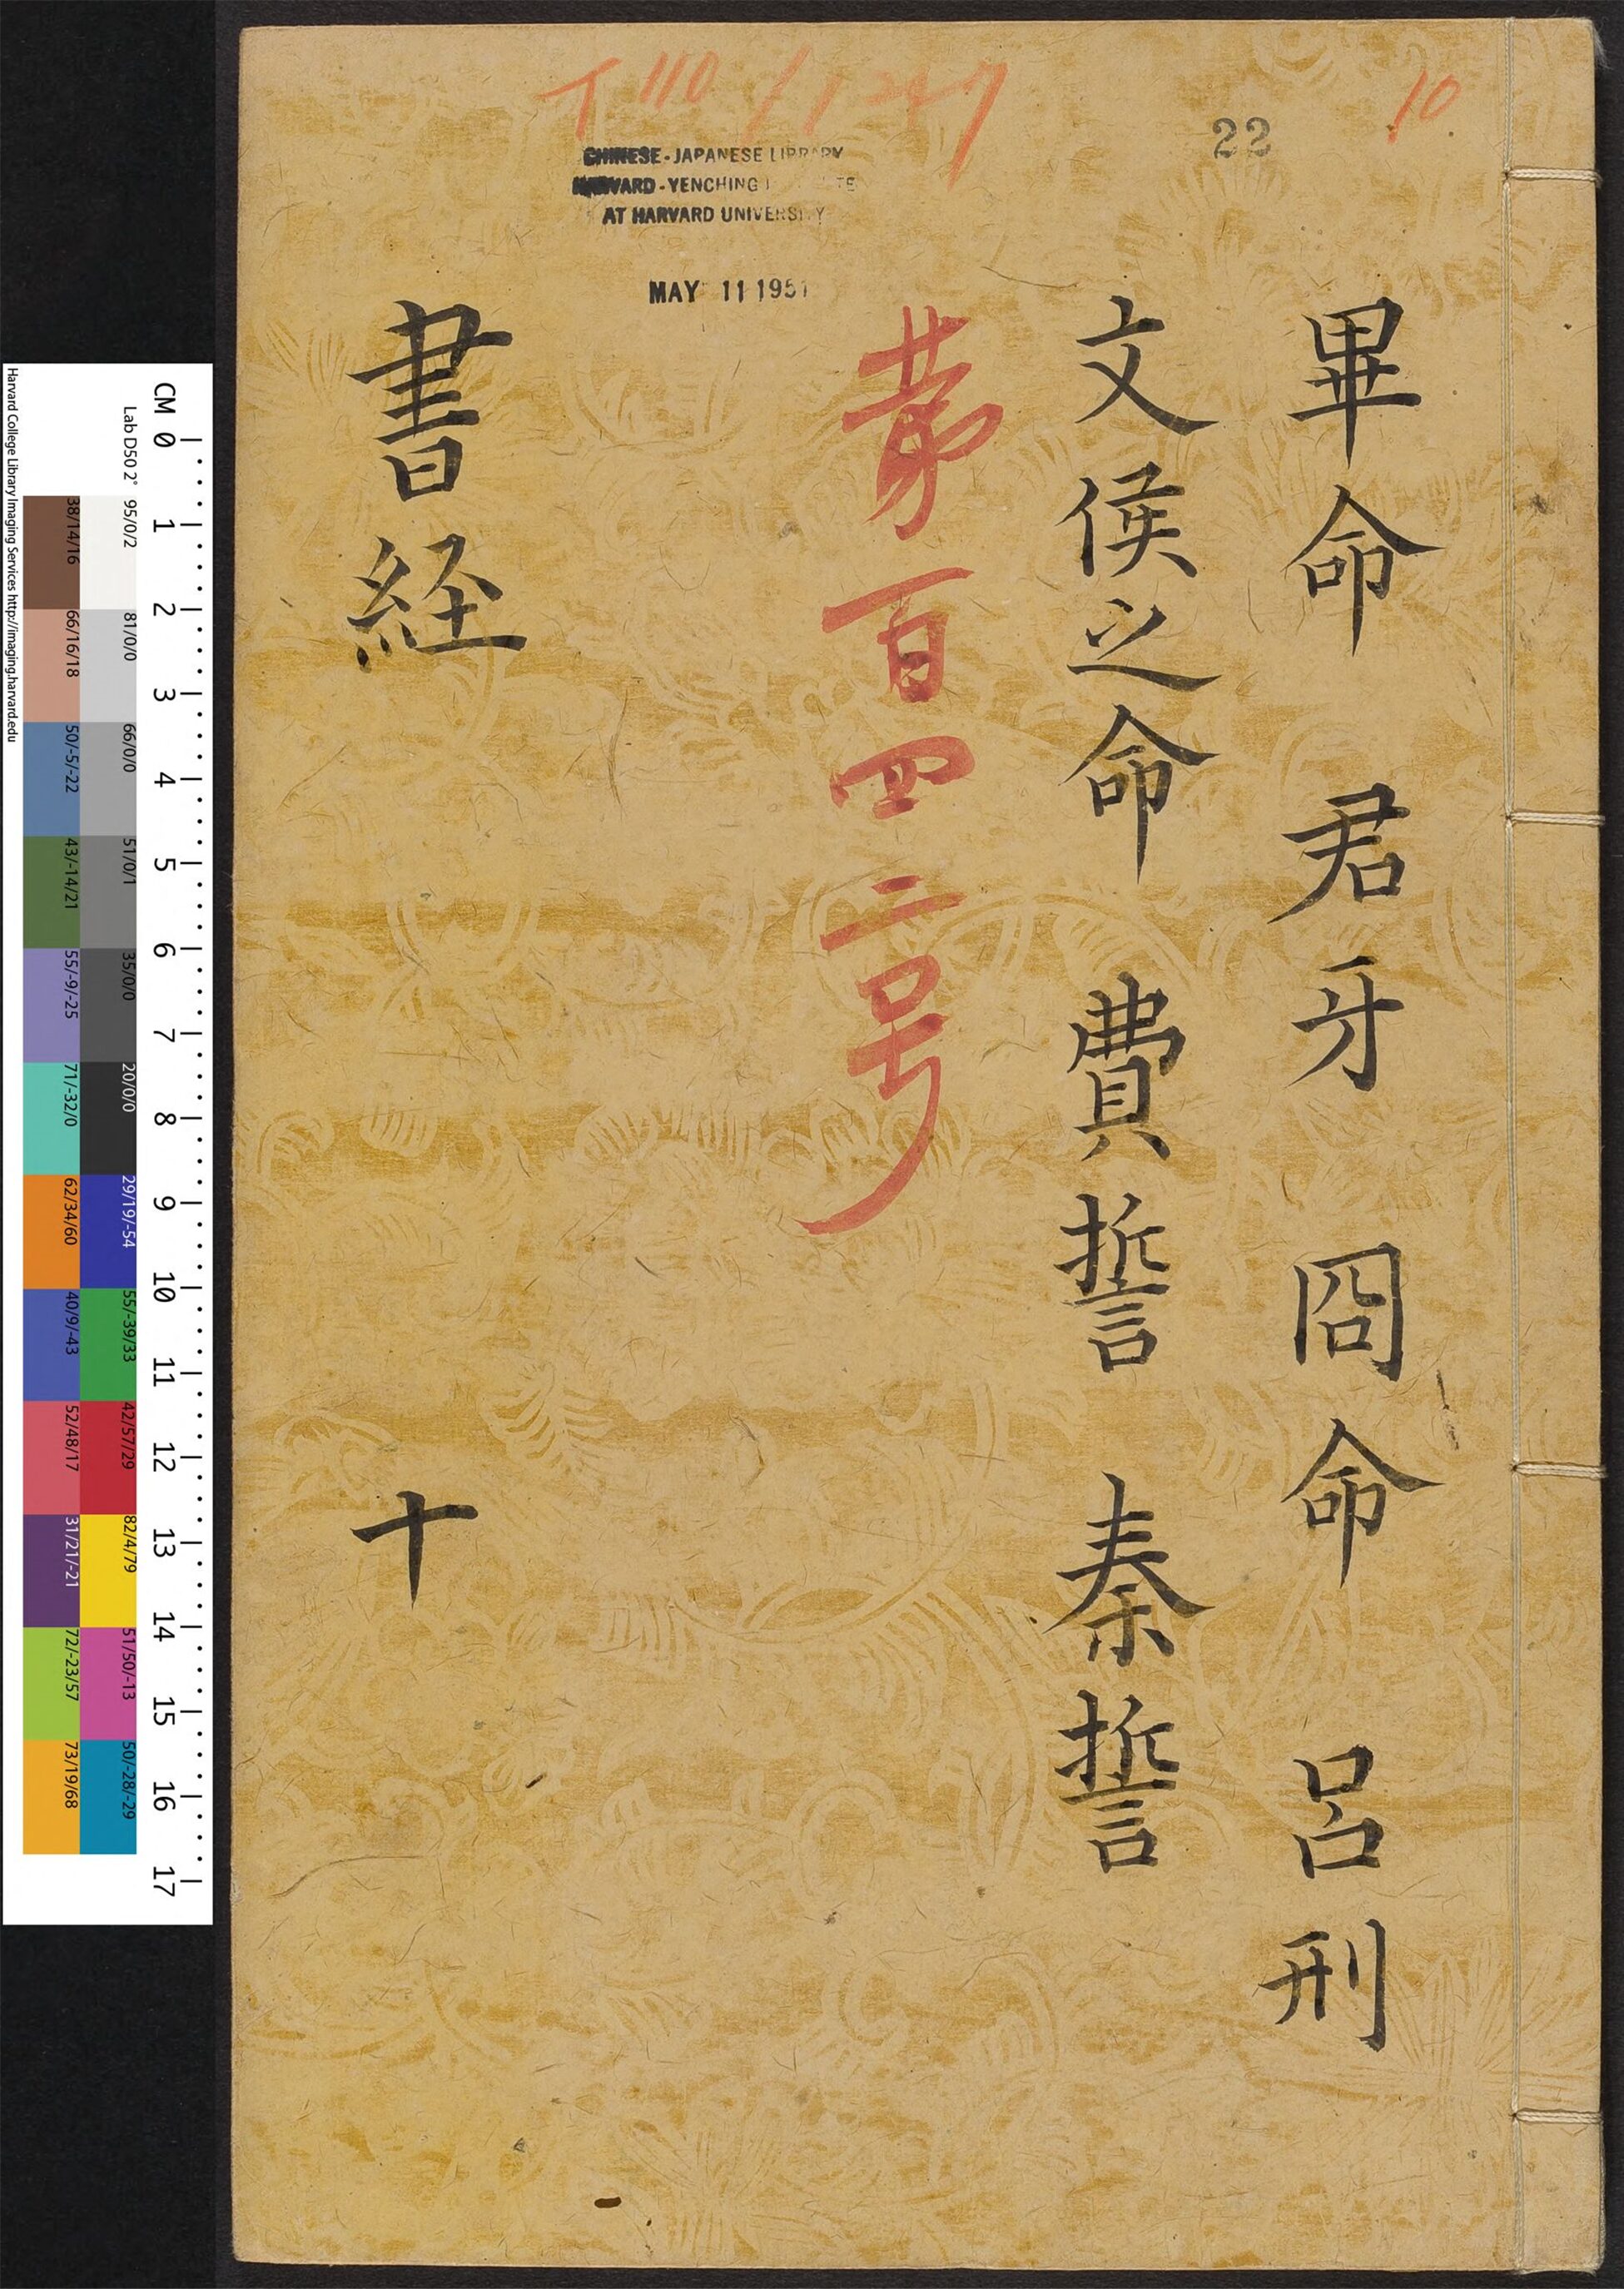 T 110 / 1247
10
22
CHINESE-JAPANESE LIBRARY
HARVARD-YENCHING INSTITUTE
AT HARVARD UNIVERSITY
MAY 11 1951
畢命 君牙 冏命 呂刑
文侯之命 費誓 秦誓
苐百四二号
書経 十
CM 0 1 2 3 4 5 6 7 8 9 10 11 12 13 14 15 16 17
Lab D50 2° 95/0/2 81/0/0 66/0/0 51/0/1 35/0/0 20/0/0 29/19/-54 55/-39/33 42/57/29 82/4/79 51/50/-13 50/-28/-29
38/14/16 66/16/18 50/-5/-22 43/-14/21 55/-9/-25 71/-32/0 62/34/60 40/9/-43 52/48/17 31/21/-21 72/-23/57 73/19/68
Harvard College Library Imaging Services http://imaging.harvard.edu